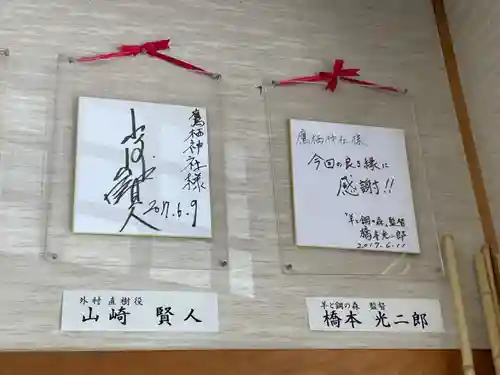 鷹栖神社様
山崎賢人
2017.6.9
外村 直樹役
山崎 賢人
鷹栖神社様
今回の良き縁に
感謝!!
「羊と鋼の森」監督
橋本光二郎
2017.6.11
羊と鋼の森 監督
橋本 光二郎